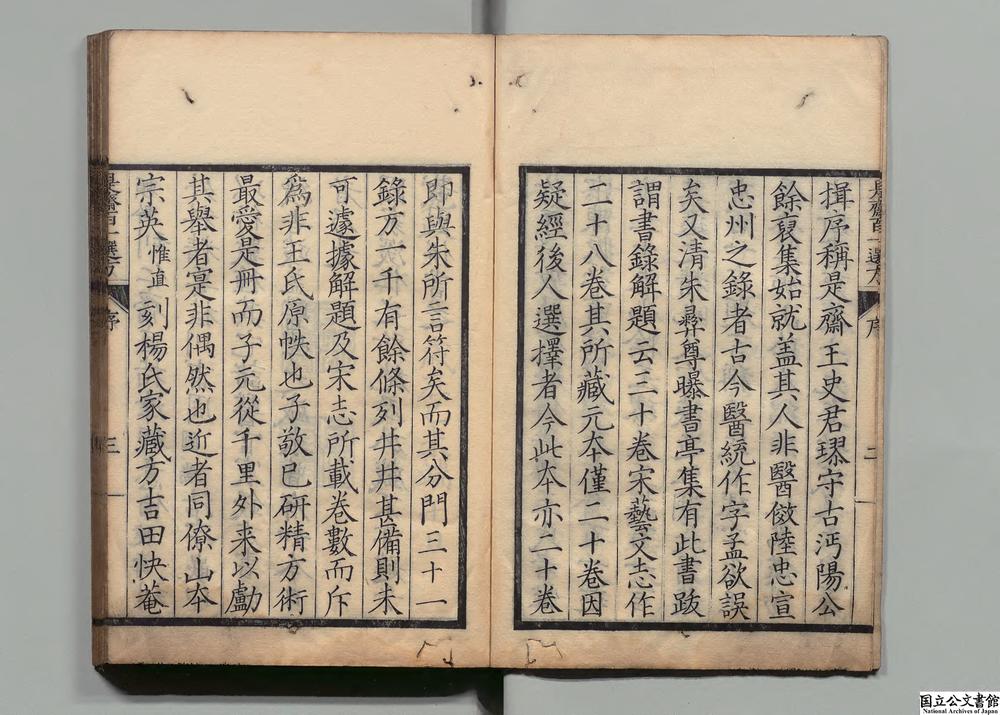 是齋百一選方 序 二
揖序稱是齋王史君璆守古沔陽公
餘裒集始就盖其人非醫傚陸忠宣
忠州之錄者古今醫統作字孟欲誤
矣又清朱彝尊曝書亭集有此書跋
謂書錄解題云三十卷宋藝文志作
二十八卷其所藏元本僅二十卷因
疑經後人選擇者今此本亦二十卷
即與朱所言符矣而其分門三十一
錄方一千有餘條列井井甚備則未
可遽據解題及宋志所載卷數而斥
爲非王氏原帙也子敬已研精方術
最愛是冊而子元從千里外来以勵
其舉者寔非偶然也近者同僚山本
宗英惟直刻楊氏家藏方吉田快菴
是齋百一選方 序 三
国立公文書館
National Archives of Japan